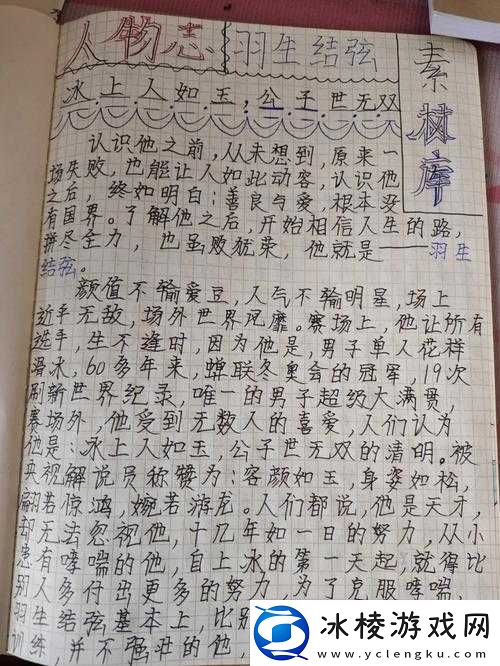 人物志
羽生结弦
素材库
冰上人如玉，公子世无双
认识他之前，从未想到，原来一
场失败，也能让人如此动容，认识他
之后，终如明白：善良与爱，根本没
有国界。了解他之后，开始相信人生的路，
拼尽全力，也虽败犹荣，他就是——羽生
结弦。
颜值不输爱豆，人气不输明星，场上
近乎无敌，场外世界风靡。赛场上，他让所有
选手，生不逢时，因为他是，男子单人花样
滑冰，60多年来，蝉联冬奥会的冠军，19次
刷新世界纪录，唯一的男子超级大满贯，
赛场外，他受到无数人的喜爱，人们认为
他是：冰上人如玉，公子世无双的清明。被
央视解说员称赞为：容颜如玉，身姿如松，
翩若惊鸿，婉若游龙。人们都说，他是天才，
却无法忽视他，十几年如一日的努力，从小
患有哮喘的他，自上冰的第一天起，就得比
别人多付出更多的努力，为了克服哮喘，
羽生结弦基本上，比别
训练，并不强壮的他，
冰棱游戏网
www.yclengku.com